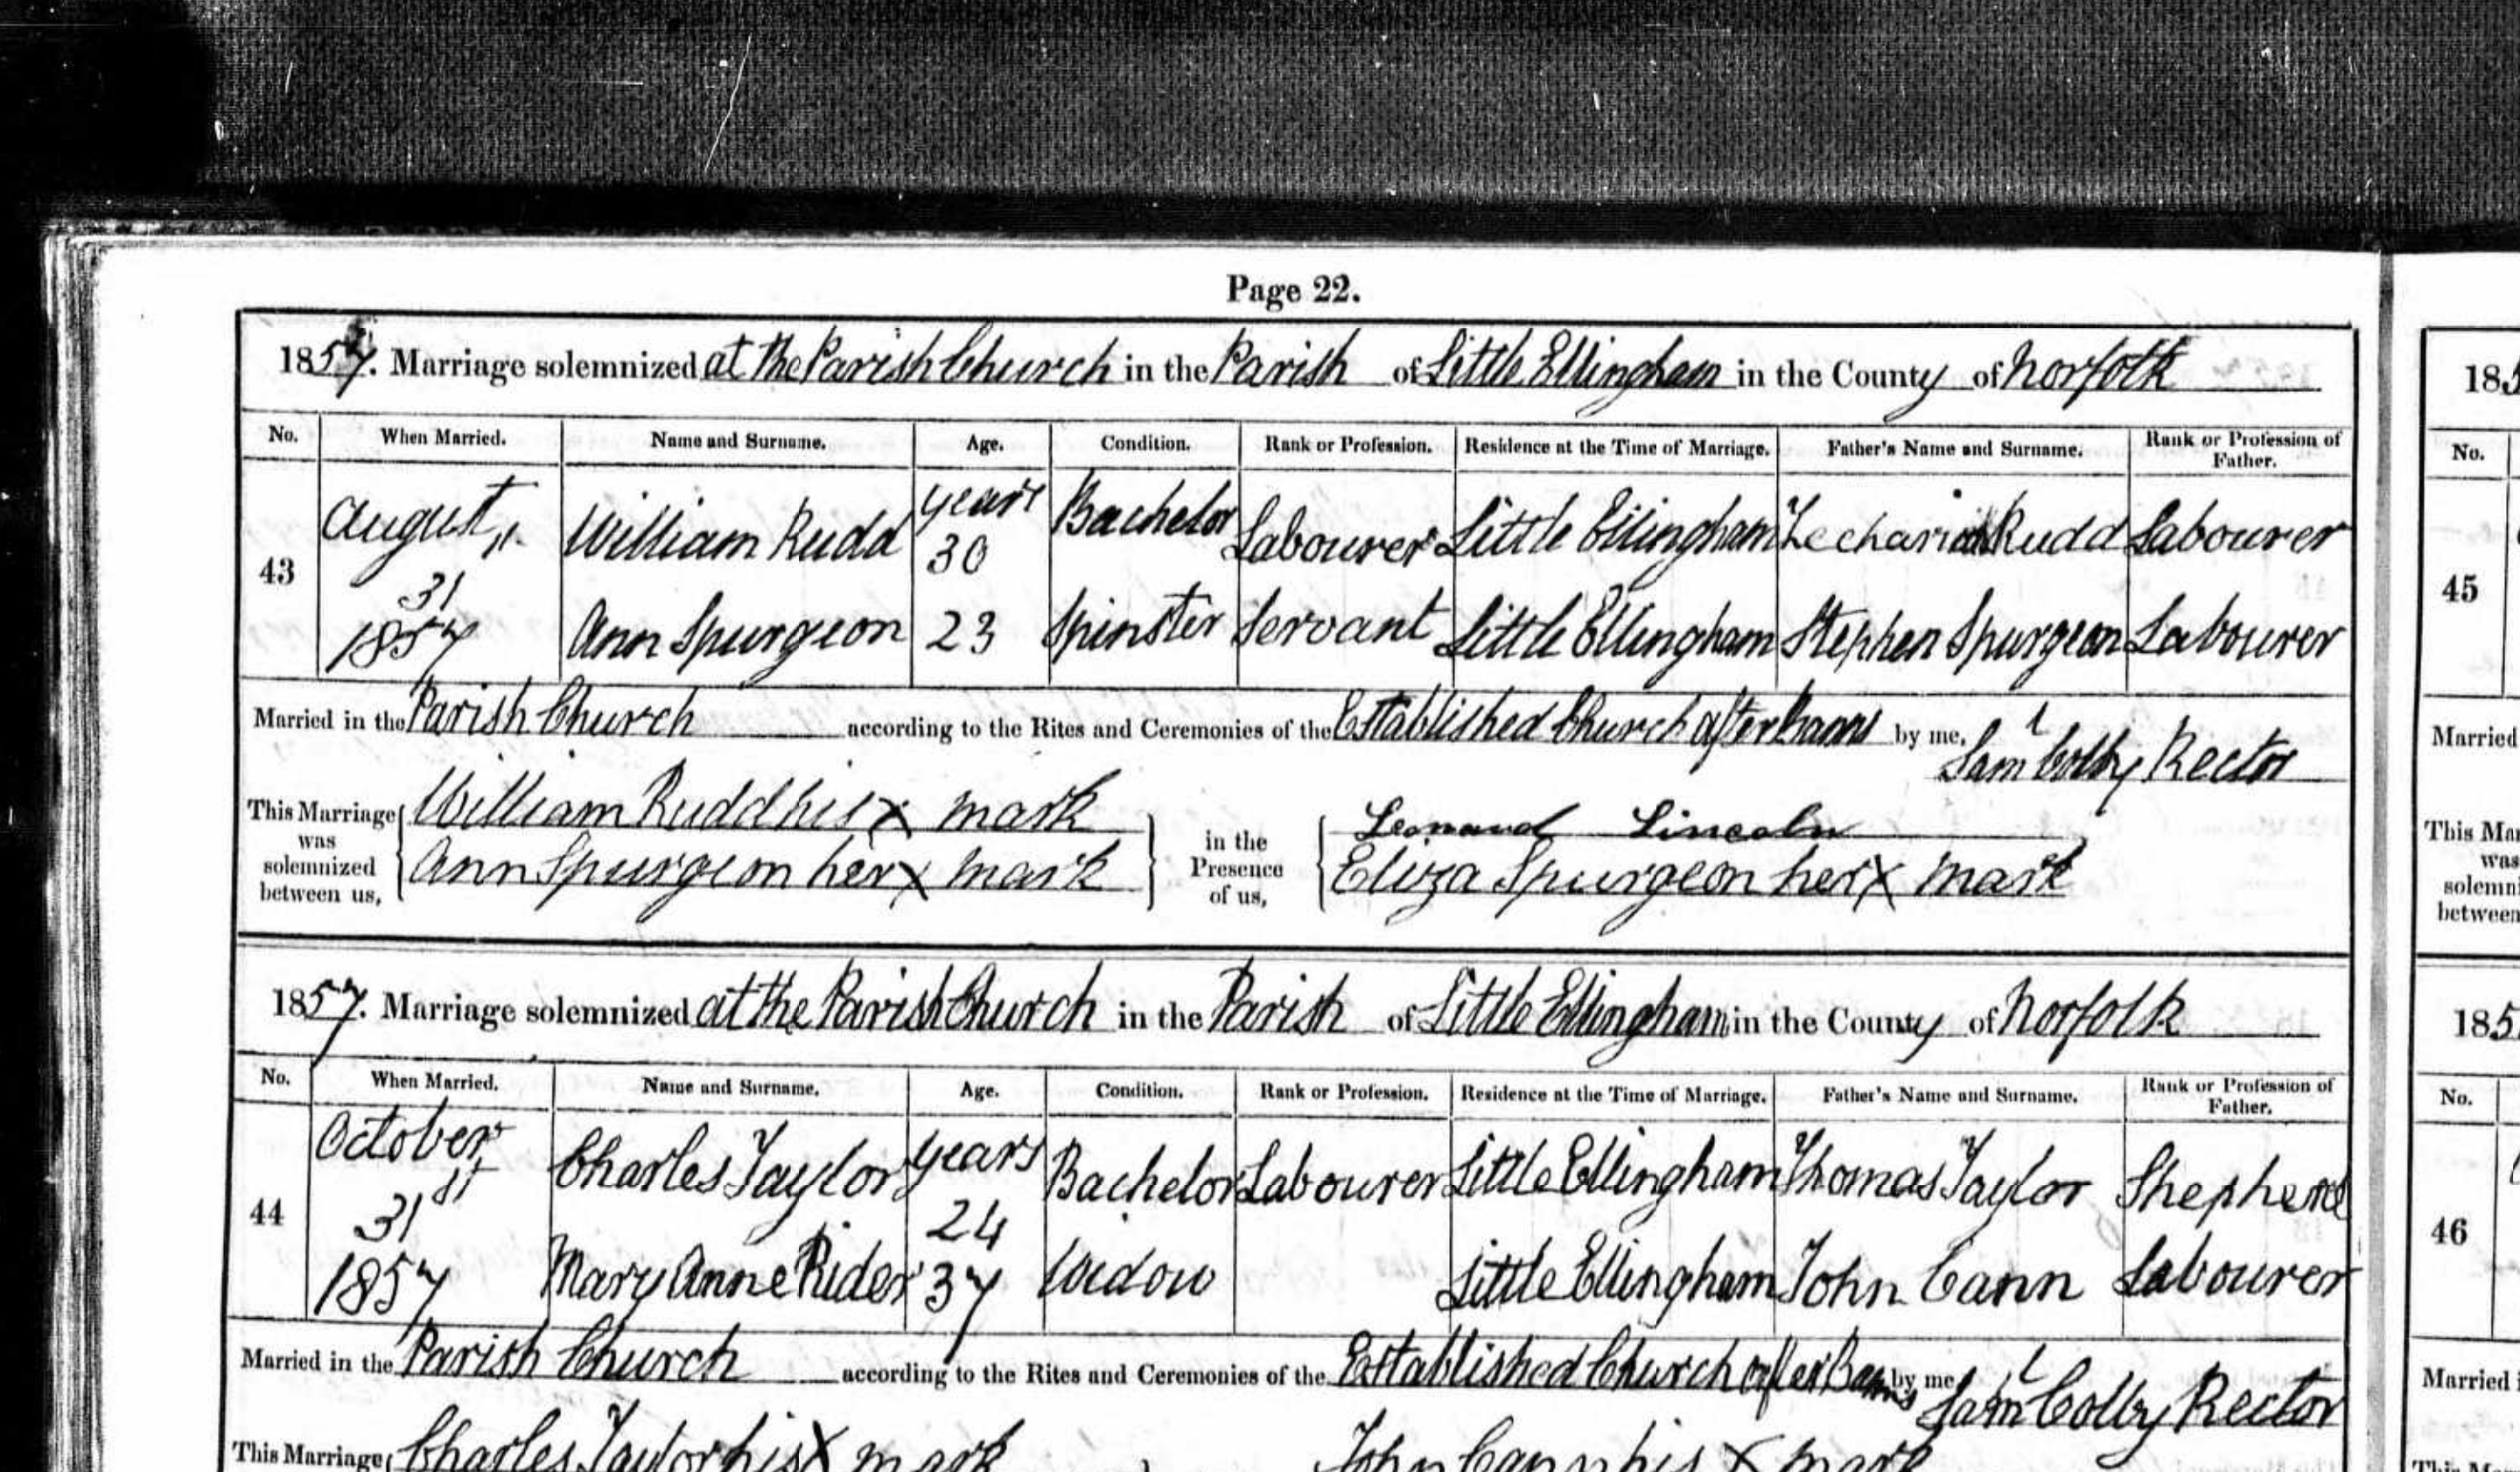 Page 22.
1857. Marriage solemnized at the Parish Church in the Parish of Little Ellingham in the County of Norfolk
No. When Married. Name and Surname. Age. Condition. Rank or Profession. Residence at the Time of Marriage. Father's Name and Surname. Rank or Profession of Father.
43 August 31 1857 William Rudd years 30 Bachelor Labourer Little Ellingham Zechariah Rudd Labourer
Ann Spurgeon 23 Spinster Servant Little Ellingham Stephen Spurgeon Labourer
Married in the Parish Church according to the Rites and Ceremonies of the Established Church after banns by me, Saml Colby Rector
This Marriage was solemnized between us, William Rudd his x mark in the Presence of us, Leonard Lincoln
Ann Spurgeon her x mark Eliza Spurgeon her x mark
1857. Marriage solemnized at the Parish Church in the Parish of Little Ellingham in the County of Norfolk
No. When Married. Name and Surname. Age. Condition. Rank or Profession. Residence at the Time of Marriage. Father's Name and Surname. Rank or Profession of Father.
44 October 31st 1857 Charles Taylor years 24 Bachelor Labourer Little Ellingham Thomas Taylor Shepherd
Mary Anne Rider 37 Widow Little Ellingham John Cann Labourer
Married in the Parish Church according to the Rites and Ceremonies of the Established Church after Banns by me Saml Colby Rector
This Marriage Charles Taylor his X mark John Cann his X mark
185
No.
45
Married
This Mar
was
solemni
between
185
No.
46
Married i